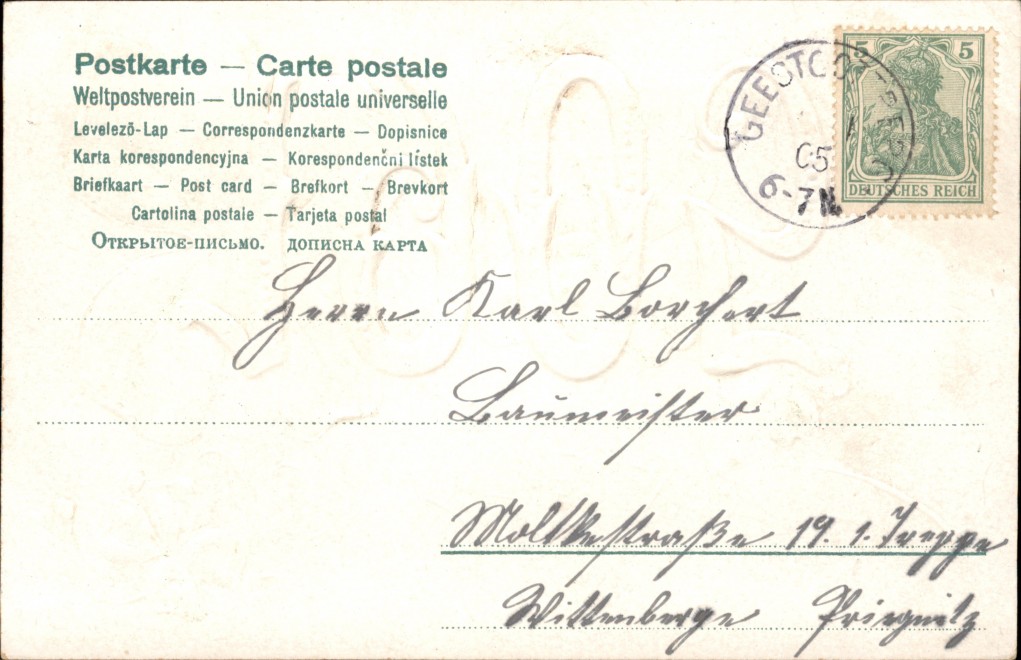 Postkarte — Carte postale
Weltpostverein — Union postale universelle
Levelező-Lap — Correspondenzkarte — Dopisnice
Karta korespondencyjna — Korespondenčni lístek
Briefkaart — Post card — Brefkort — Brevkort
Cartolina postale — Tarjeta postal
Открытое-письмо. дописна карта
5 5
DEUTSCHES REICH
05
6-7N.
Herrn Karl Borchert
Baumeister
Moltkestraße 19. 1. Treppe
Wittenberge Priegnitz